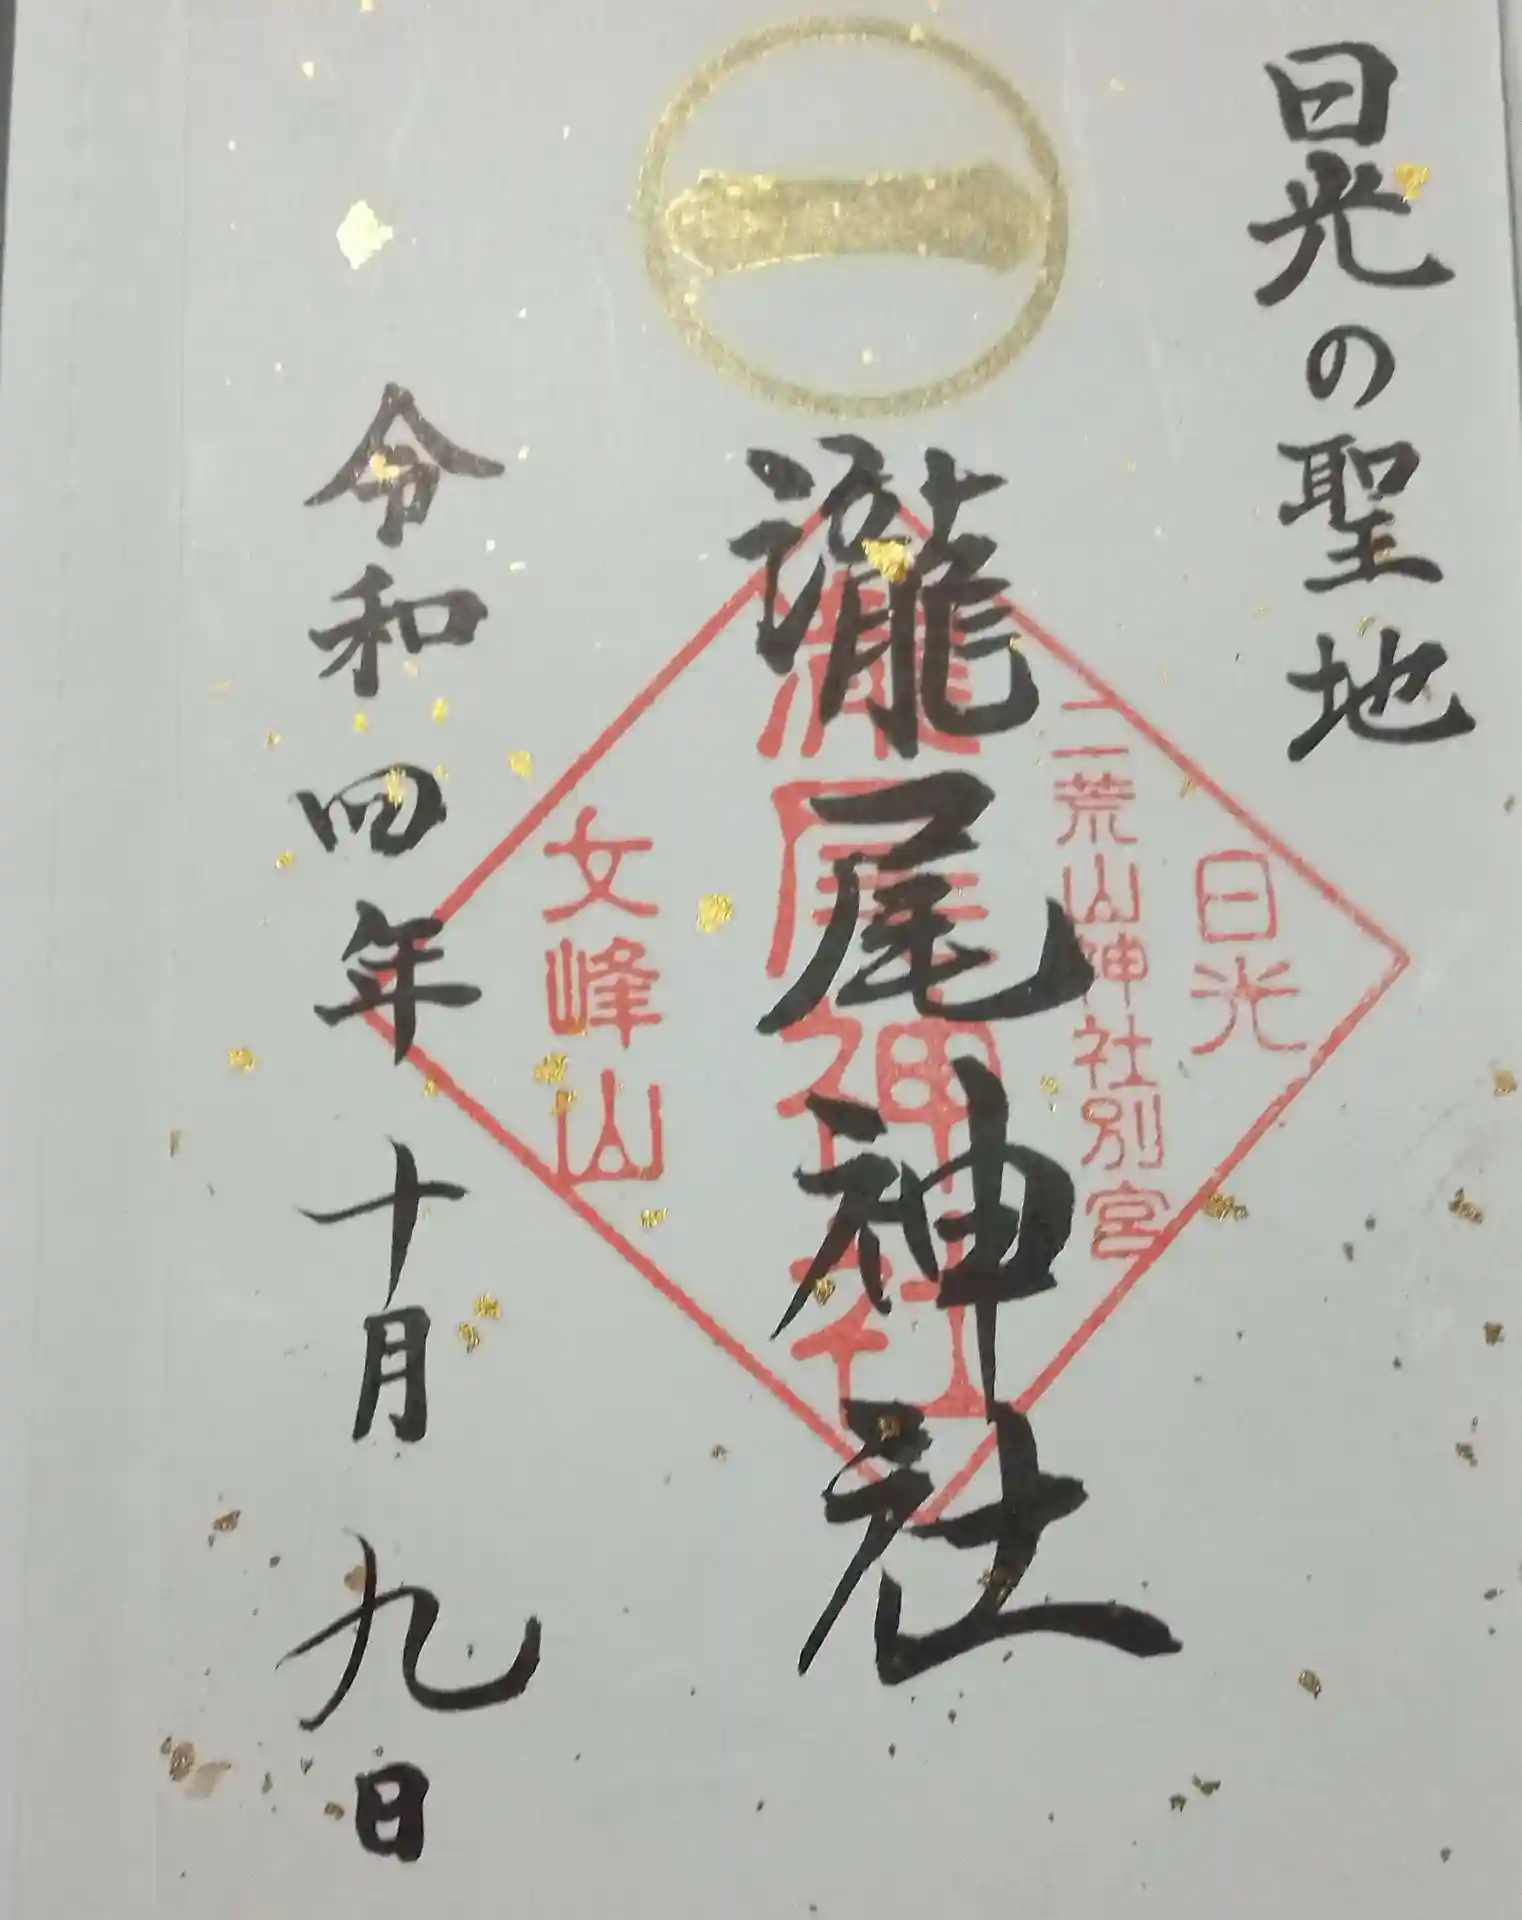 日光の聖地
一
瀧尾神社
日光
二荒山神社別宮
瀧尾神社
女峰山
令和四年十月九日